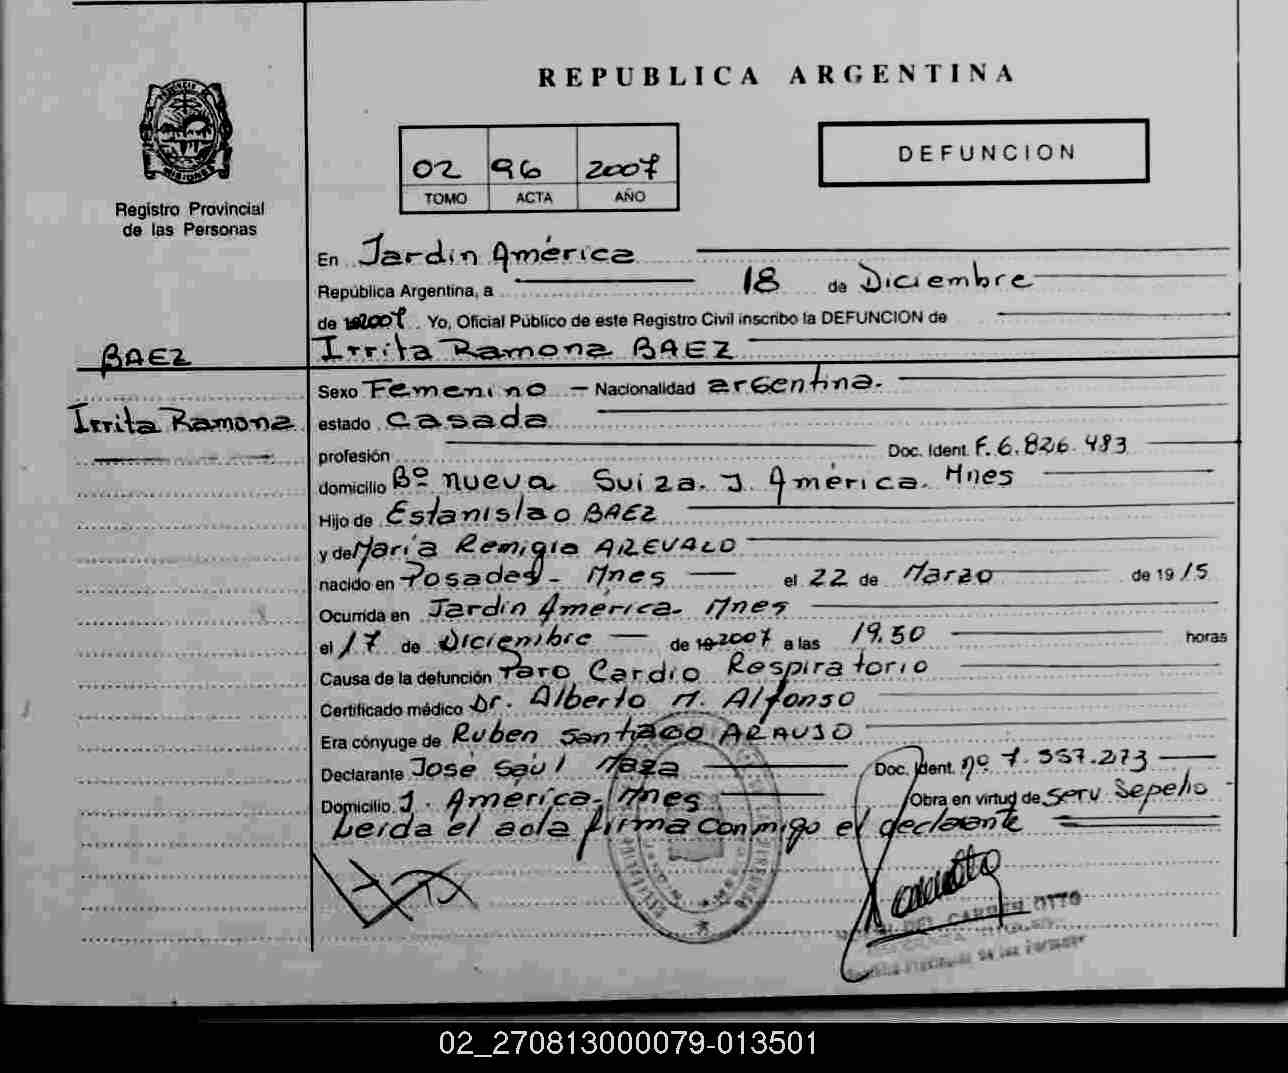 REPUBLICA ARGENTINA
DEFUNCION
02 96 2007
TOMO ACTA AÑO
Registro Provincial
de las Personas
En Jardin América
República Argentina, a 18 de Diciembre
de 2007. Yo, Oficial Público de este Registro Civil inscribo la DEFUNCION de
BAEZ
Irrita Ramona BAEZ
Sexo Femenino - Nacionalidad argentina.
Irrita Ramona
estado casada
profesión Doc. Ident. F. 6.826.483
domicilio Bº nueva Suiza. J. América. Mnes
Hijo de Estanislao BAEZ
y de María Remigia AREVALO
nacido en Posadas - Mnes el 22 de Marzo de 1915
Ocurrida en Jardin América. Mnes
el 17 de Diciembre de 2007 a las 19.50 horas
Causa de la defunción Paro Cardio Respiratorio
Certificado médico Dr. Alberto M. Alfonso
Era cónyuge de Ruben Santiago ARAUJO
Declarante José Saúl Maza Doc. Ident. nº 7.557.273
Domicilio J. América. Mnes Obra en virtud de Serv Sepelio
Leida el acta firma conmigo el declarante
OTTO
02_270813000079-013501